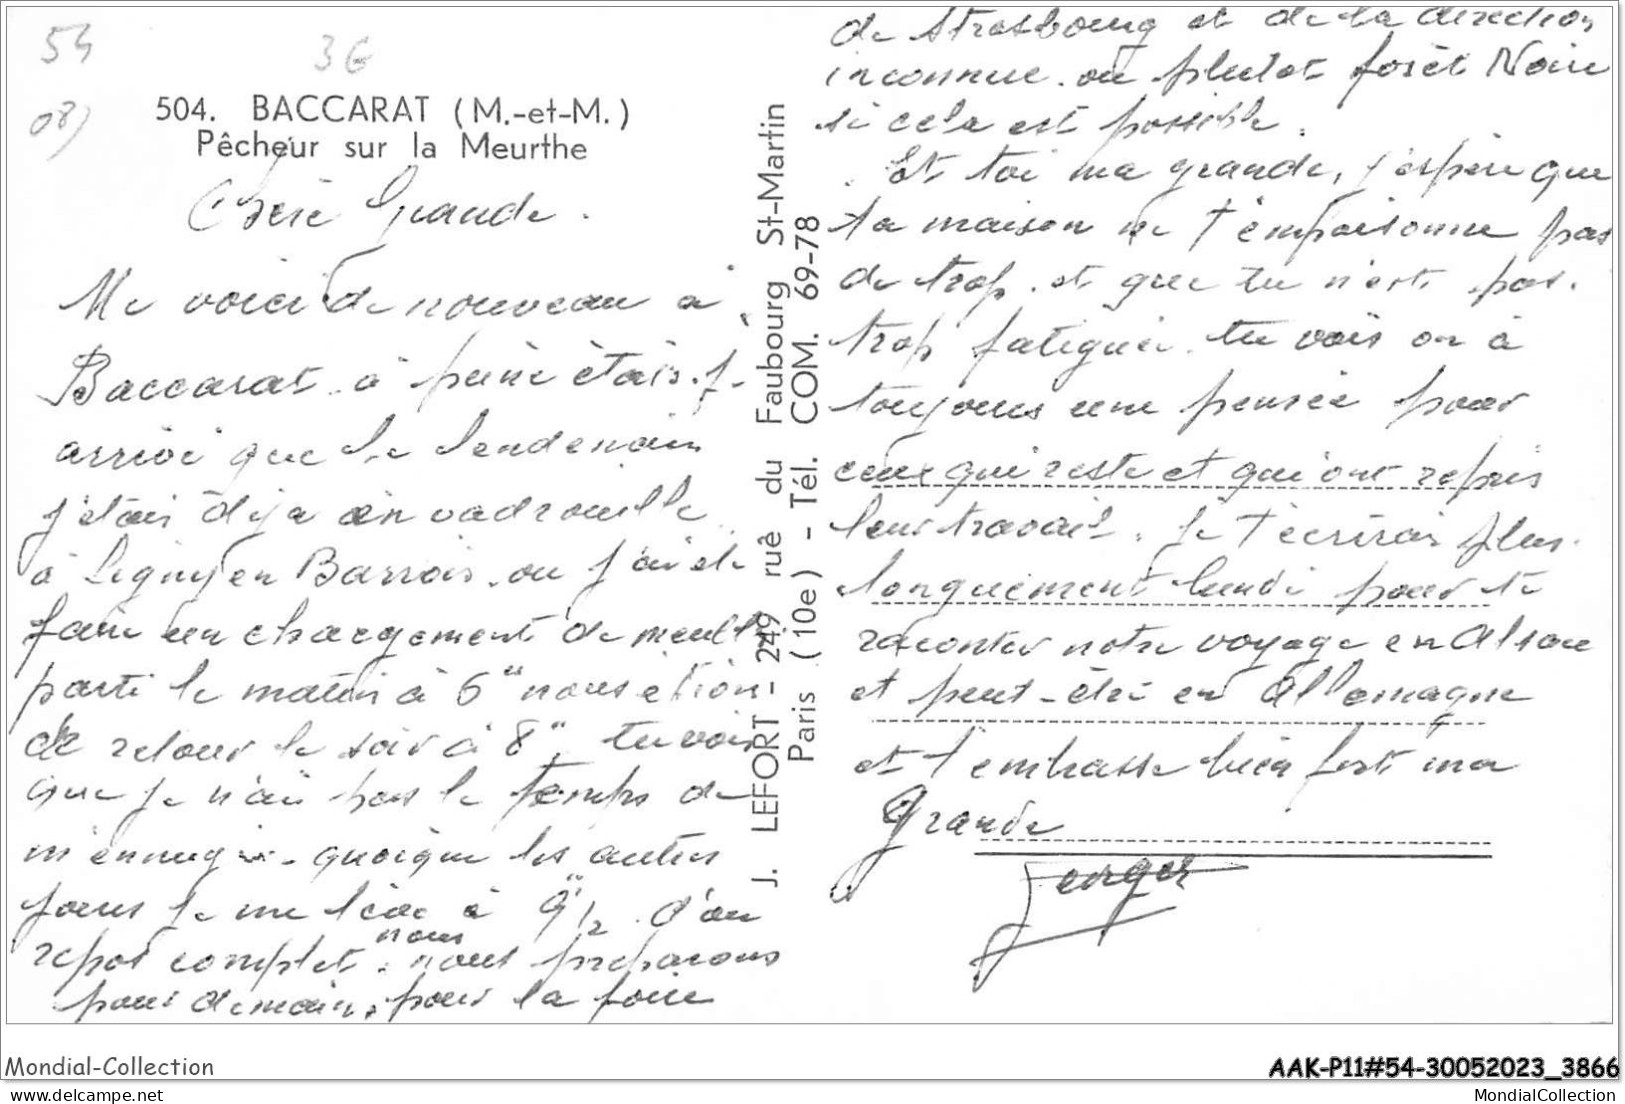 54
36
08)
504. BACCARAT (M.-et-M.)
Pêcheur sur la Meurthe
Chère Grande.
Me voici de nouveau à
Baccarat à peine étais-j-
arrivé que le lendemain
j'étais déjà en vadrouille
à Ligny en Barrois. ou j'ai été
faire un chargement de meuble
parti le matin à 6" nous étions
de retour le soir à 8", tu vois
que je n'ai pas le temps de
m'ennuyer - quoique les autres
jours je me lève à 9"1/2. d'un
repos complet. nous nous préparons
pour demain, pour la foire
J. LEFORT - 249 rue du Faubourg St-Martin
Paris (10e) - Tél. COM. 69-78
de Strasbourg et de la direction
inconnue. ou plutot forêt Noire
si cela est possible.
Et toi ma grande, j'espère que
ta maison ne t'emprisonne pas
de trop. et que tu n'est pas.
trop fatiguée. tu vois on à
toujours une pensée pour
ceux qui reste et qui ont repris
leur travail. Je t'écrirai plus
longuement lundi pour te
raconter notre voyage en Alsace
et peut-être en Allemagne
et t'embrasse bien fort ma
Grande
Mondial-Collection
AAK-P11#54-30052023_3866
MondialCollection.com
MondialCollection